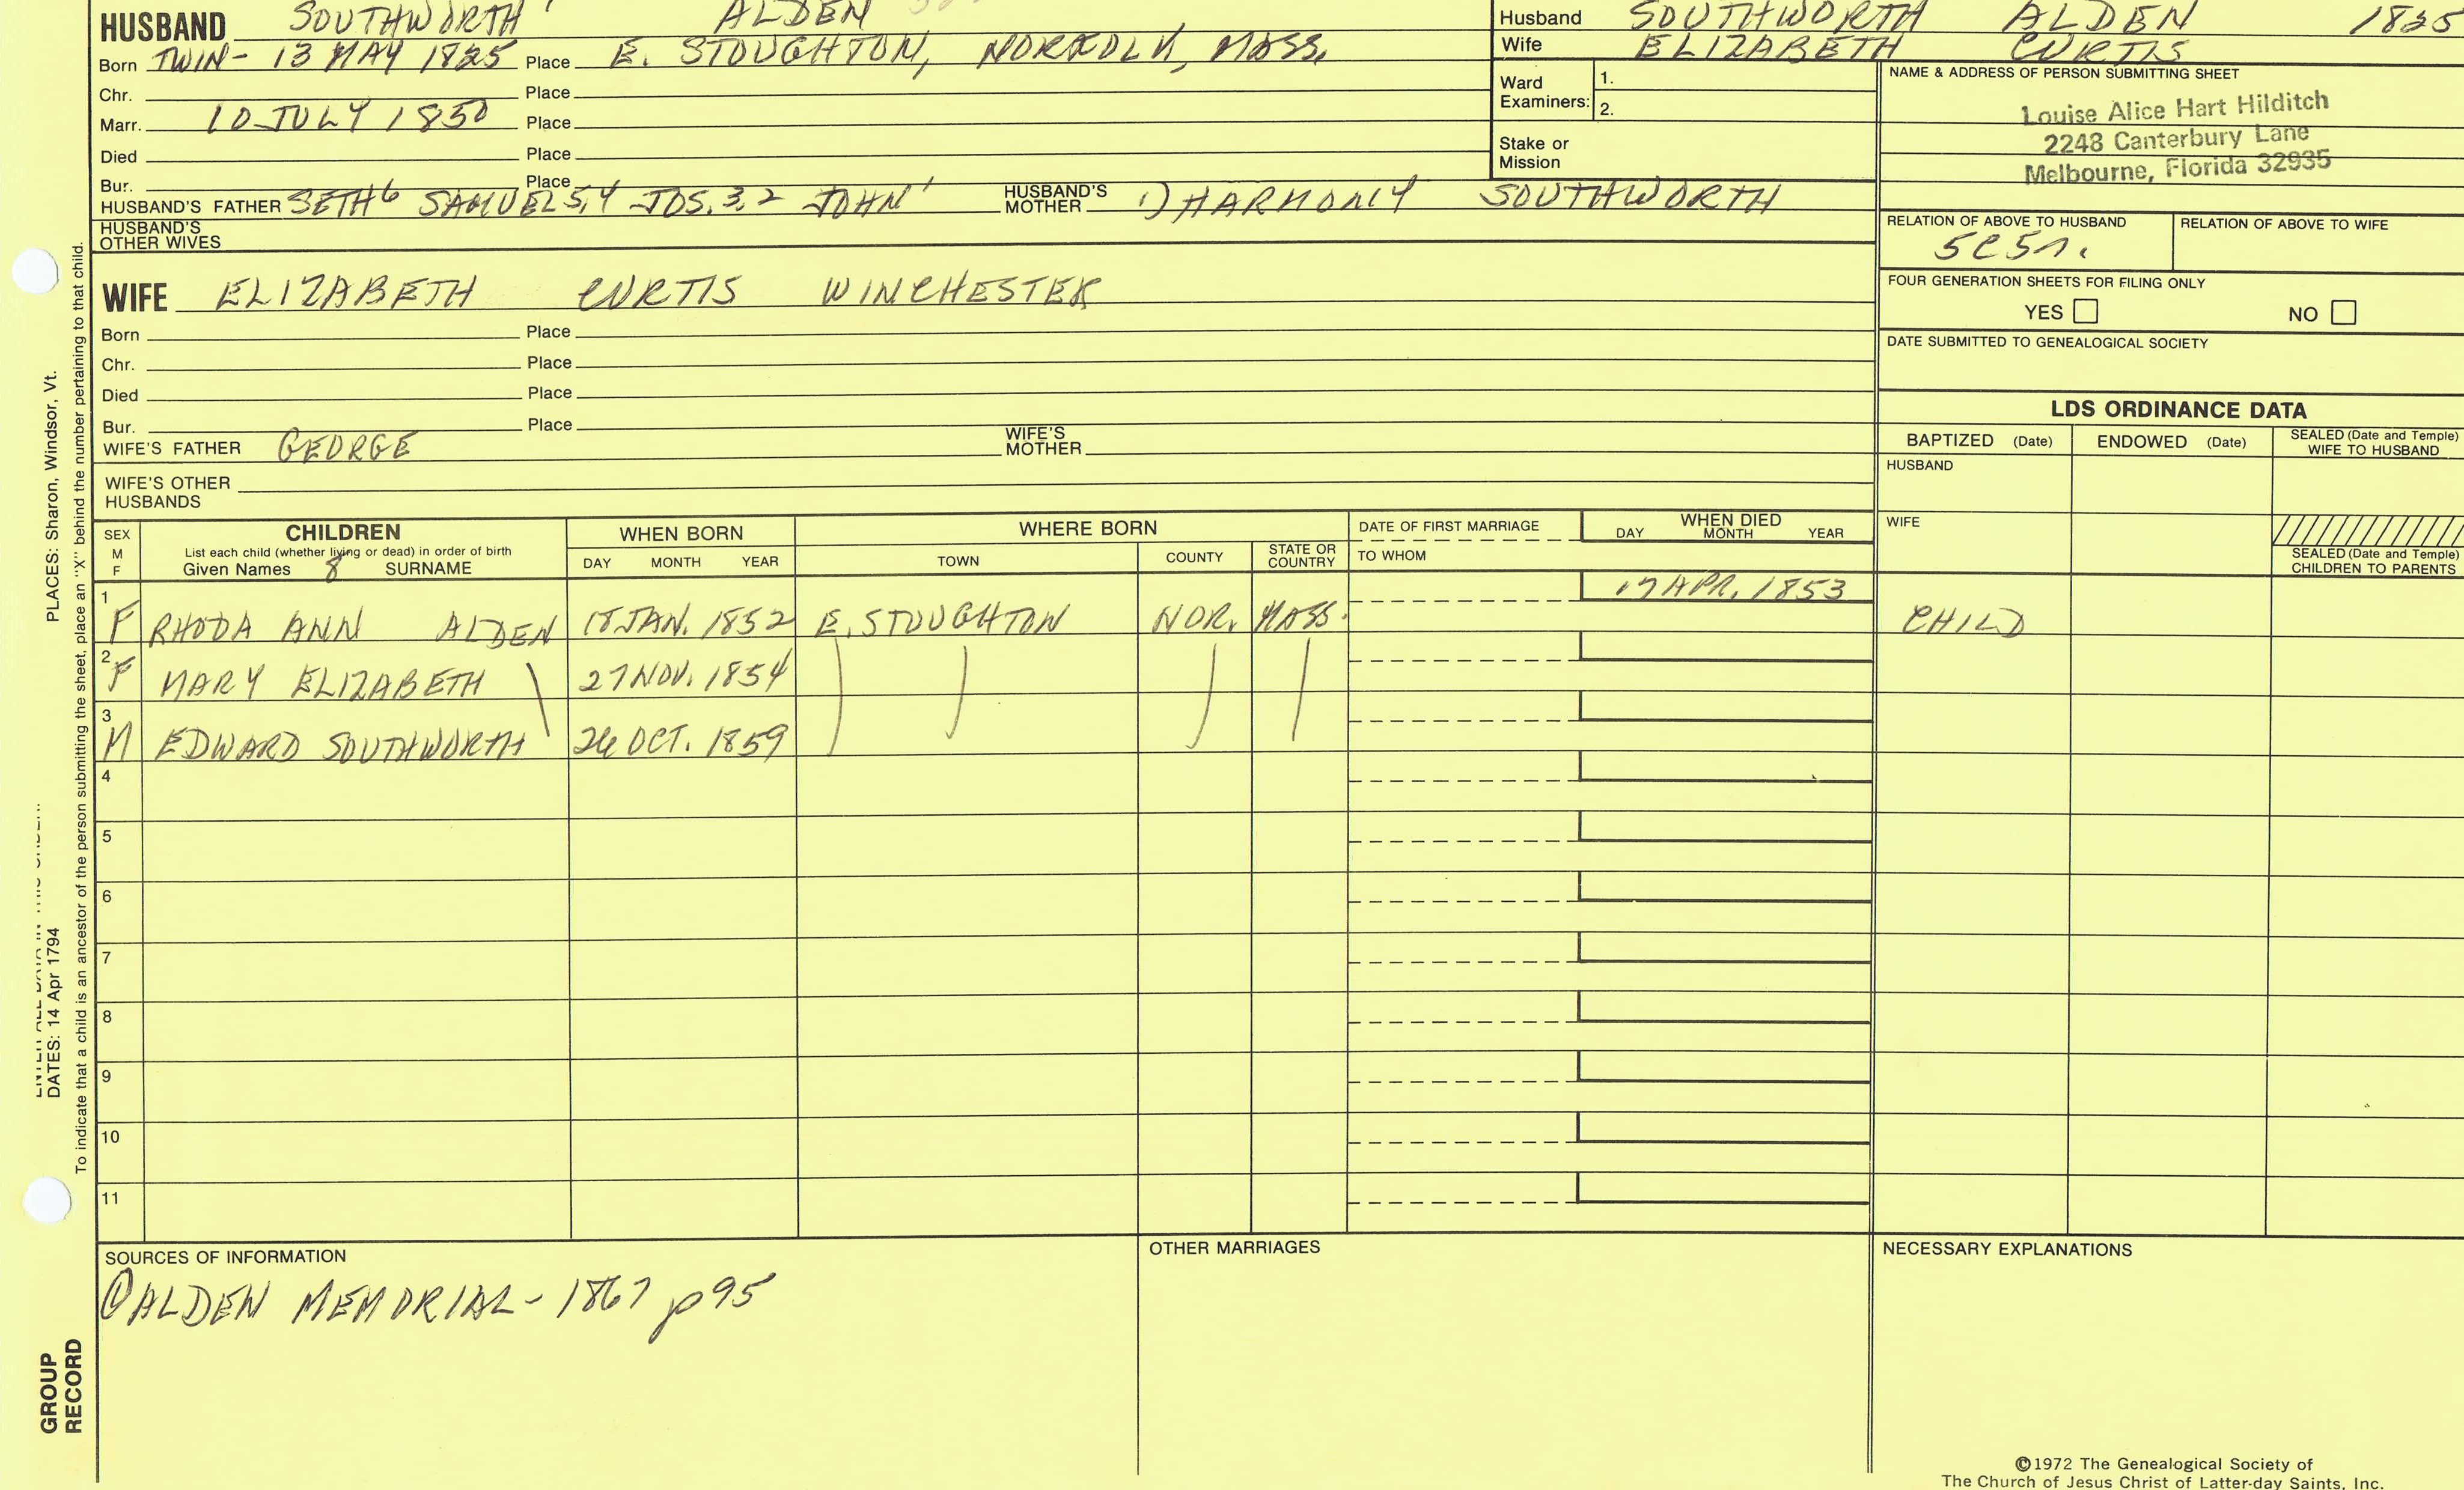 HUSBAND SOUTHWORTH ALDEN
Born TWIN- 13 MAY 1825 Place E. STOUGHTON, NORFOLK, MASS.
Chr. Place
Marr. 10 JULY 1850 Place
Died Place
Bur. Place
HUSBAND'S FATHER SETH6 SAMUEL5,4 JOS.3,2 JOHN1 HUSBAND'S MOTHER 1) HARMONY SOUTHWORTH
HUSBAND'S OTHER WIVES
Husband SOUTHWORTH ALDEN 1825
Wife ELIZABETH CURTIS
Ward Examiners: 1.
2.
Stake or Mission
NAME & ADDRESS OF PERSON SUBMITTING SHEET
Louise Alice Hart Hilditch
2248 Canterbury Lane
Melbourne, Florida 32935
RELATION OF ABOVE TO HUSBAND RELATION OF ABOVE TO WIFE
5C5r.
FOUR GENERATION SHEETS FOR FILING ONLY
YES NO
DATE SUBMITTED TO GENEALOGICAL SOCIETY
WIFE ELIZABETH CURTIS WINCHESTER
Born Place
Chr. Place
Died Place
Bur. Place
WIFE'S FATHER GEORGE WIFE'S MOTHER
WIFE'S OTHER HUSBANDS
LDS ORDINANCE DATA
BAPTIZED (Date) ENDOWED (Date) SEALED (Date and Temple) WIFE TO HUSBAND
HUSBAND
WIFE
SEALED (Date and Temple) CHILDREN TO PARENTS
SEX M F
CHILDREN
List each child (whether living or dead) in order of birth
Given Names 8 SURNAME
WHEN BORN
DAY MONTH YEAR
WHERE BORN
TOWN COUNTY STATE OR COUNTRY
DATE OF FIRST MARRIAGE
TO WHOM
WHEN DIED
DAY MONTH YEAR
1 F RHODA ANN ALDEN 18 JAN. 1852 E. STOUGHTON NOR. MASS. 17 APR. 1853 CHILD
2 F MARY ELIZABETH \ 27 NOV. 1854
3 M EDWARD SOUTHWORTH 26 OCT. 1859
4
5
6
7
8
9
10
11
SOURCES OF INFORMATION
① ALDEN MEMORIAL - 1867 p 95
OTHER MARRIAGES
NECESSARY EXPLANATIONS
©1972 The Genealogical Society of
The Church of Jesus Christ of Latter-day Saints, Inc.
PLACES: Sharon, Windsor, Vt.
DATES: 14 Apr 1794
To indicate that a child is an ancestor of the person submitting the sheet, place an "X" behind the number pertaining to that child.
GROUP
RECORD